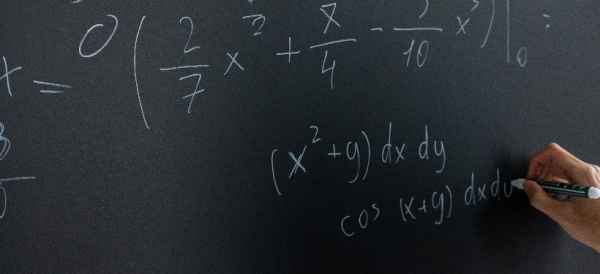 x = 0 ( 2/7 x + x/4 - /10 x ) |₀ =
(x² + y) dx dy
cos (x+y) dx dy